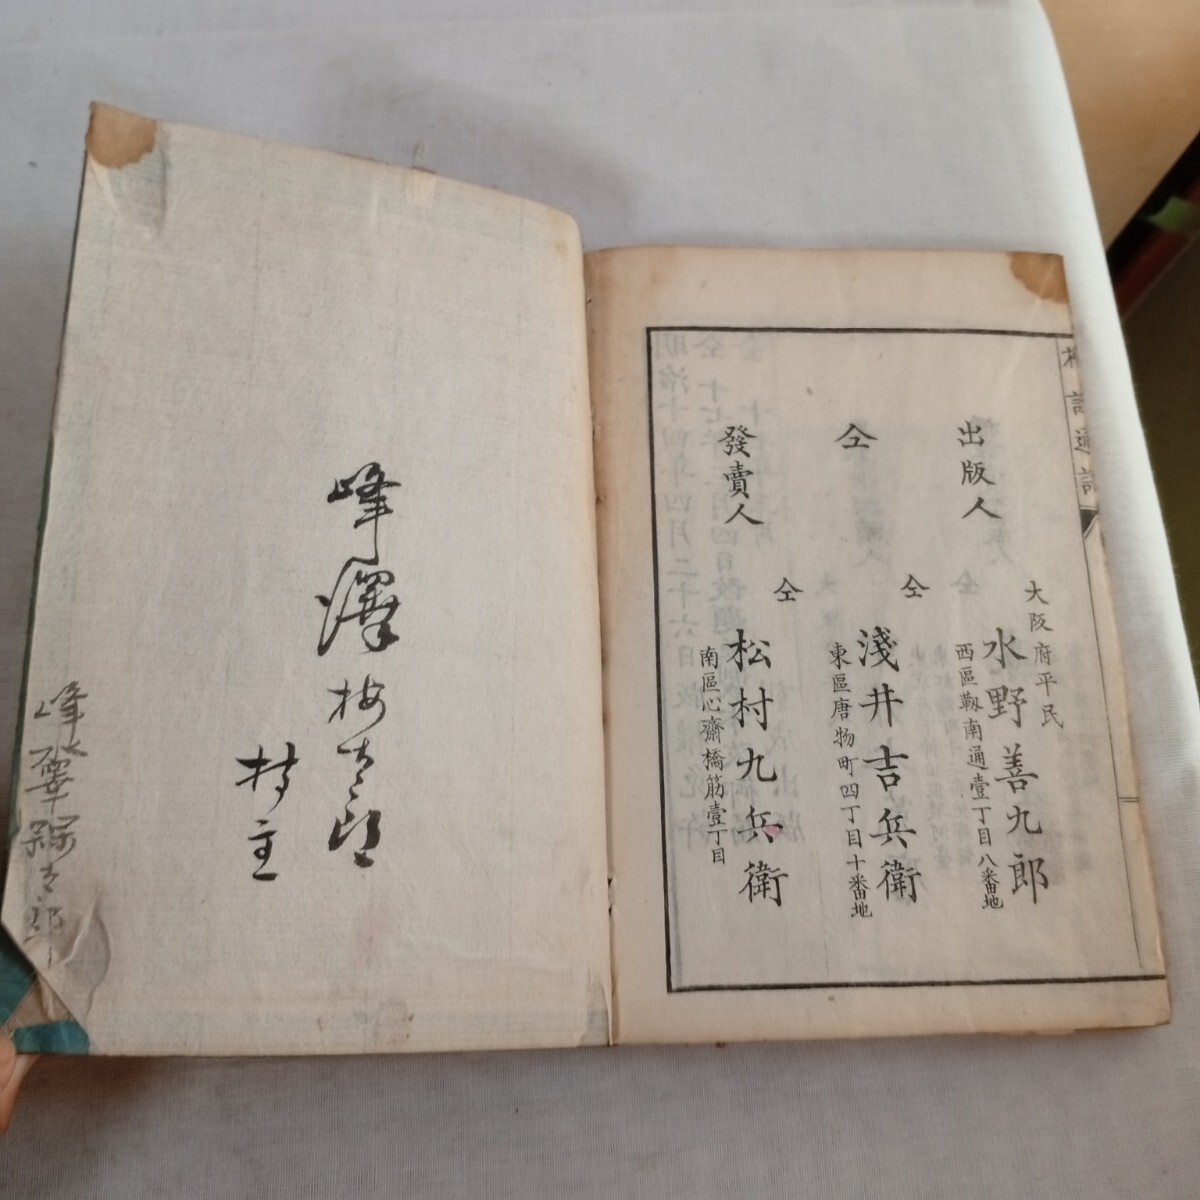 出版人
大阪府平民
水野善九郎
西區靱南通壹丁目八番地
仝
仝
淺井吉兵衛
東區唐物町四丁目十番地
發賣人
仝
松村九兵衛
南區心齋橋筋壹丁目
峰澤梅太郎
持主